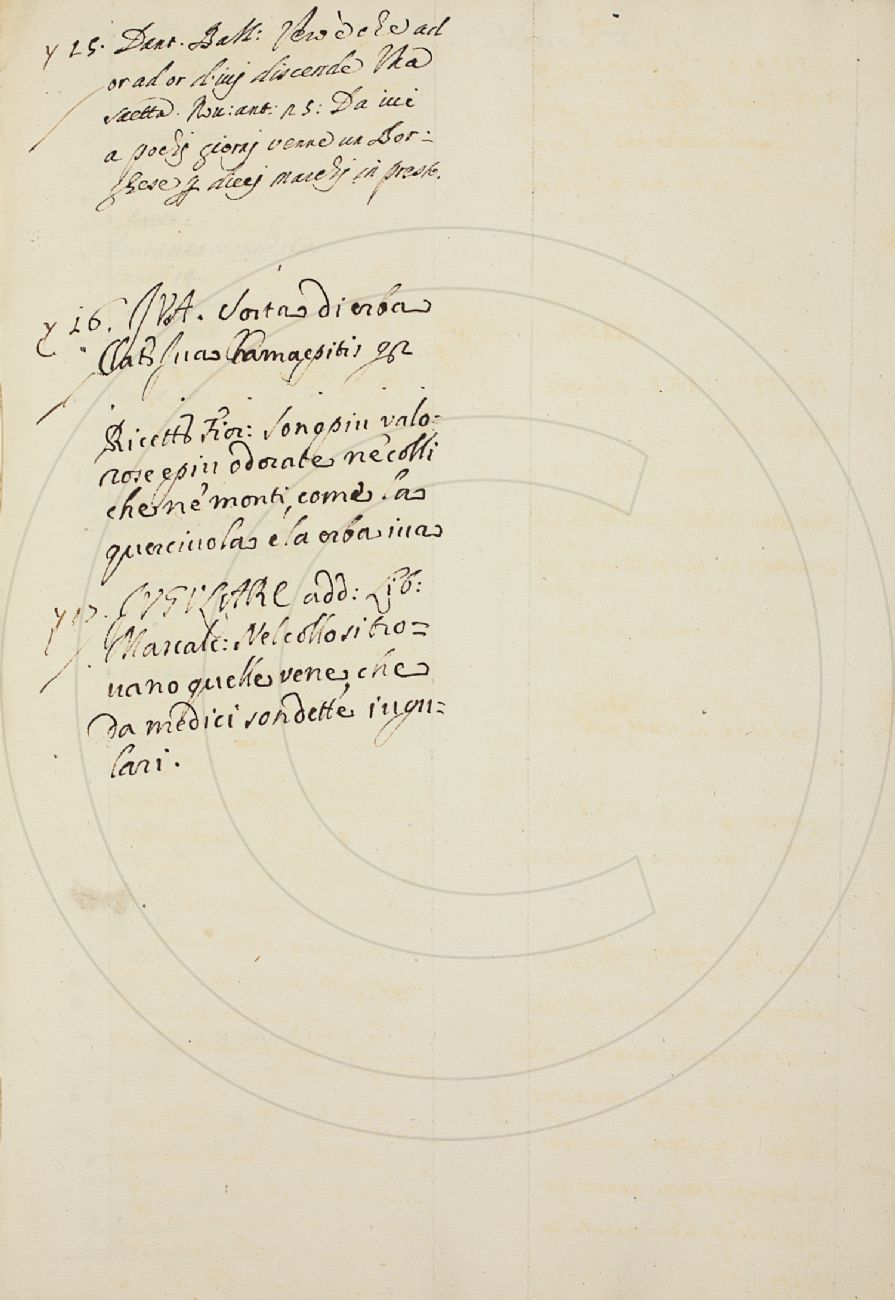 y 15. Dant. Ball: Vero è che ad
or ad or d'iuj discende Vna
saetta. Nou: ant: 25: Da iui
a pochj giornj venne un Bor=
ghese p diecj marchj in prest.
y 16. JVA. Sorta di erba
Lat Jua Chamaepitis
Ricett Fior: Son piu valo=
rose e piu odorate né colli
che né monti, come la
querciuola e la erba iua
y 17. JVGVLARE add: Lib:
Mascalc: Nel collo si tro=
uano quelle vene, che
da medici son dette iugu=
lari.